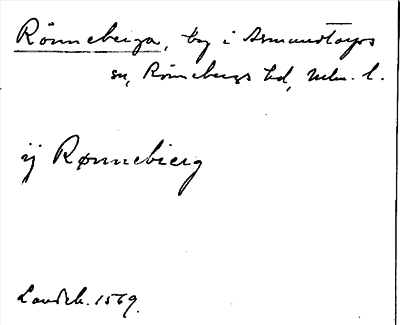 Rönneberga, by i Asmundtorps
sn, Rönnebergs hd, Mlm. l.
ij Rønnebierg
Landeb. 1569.